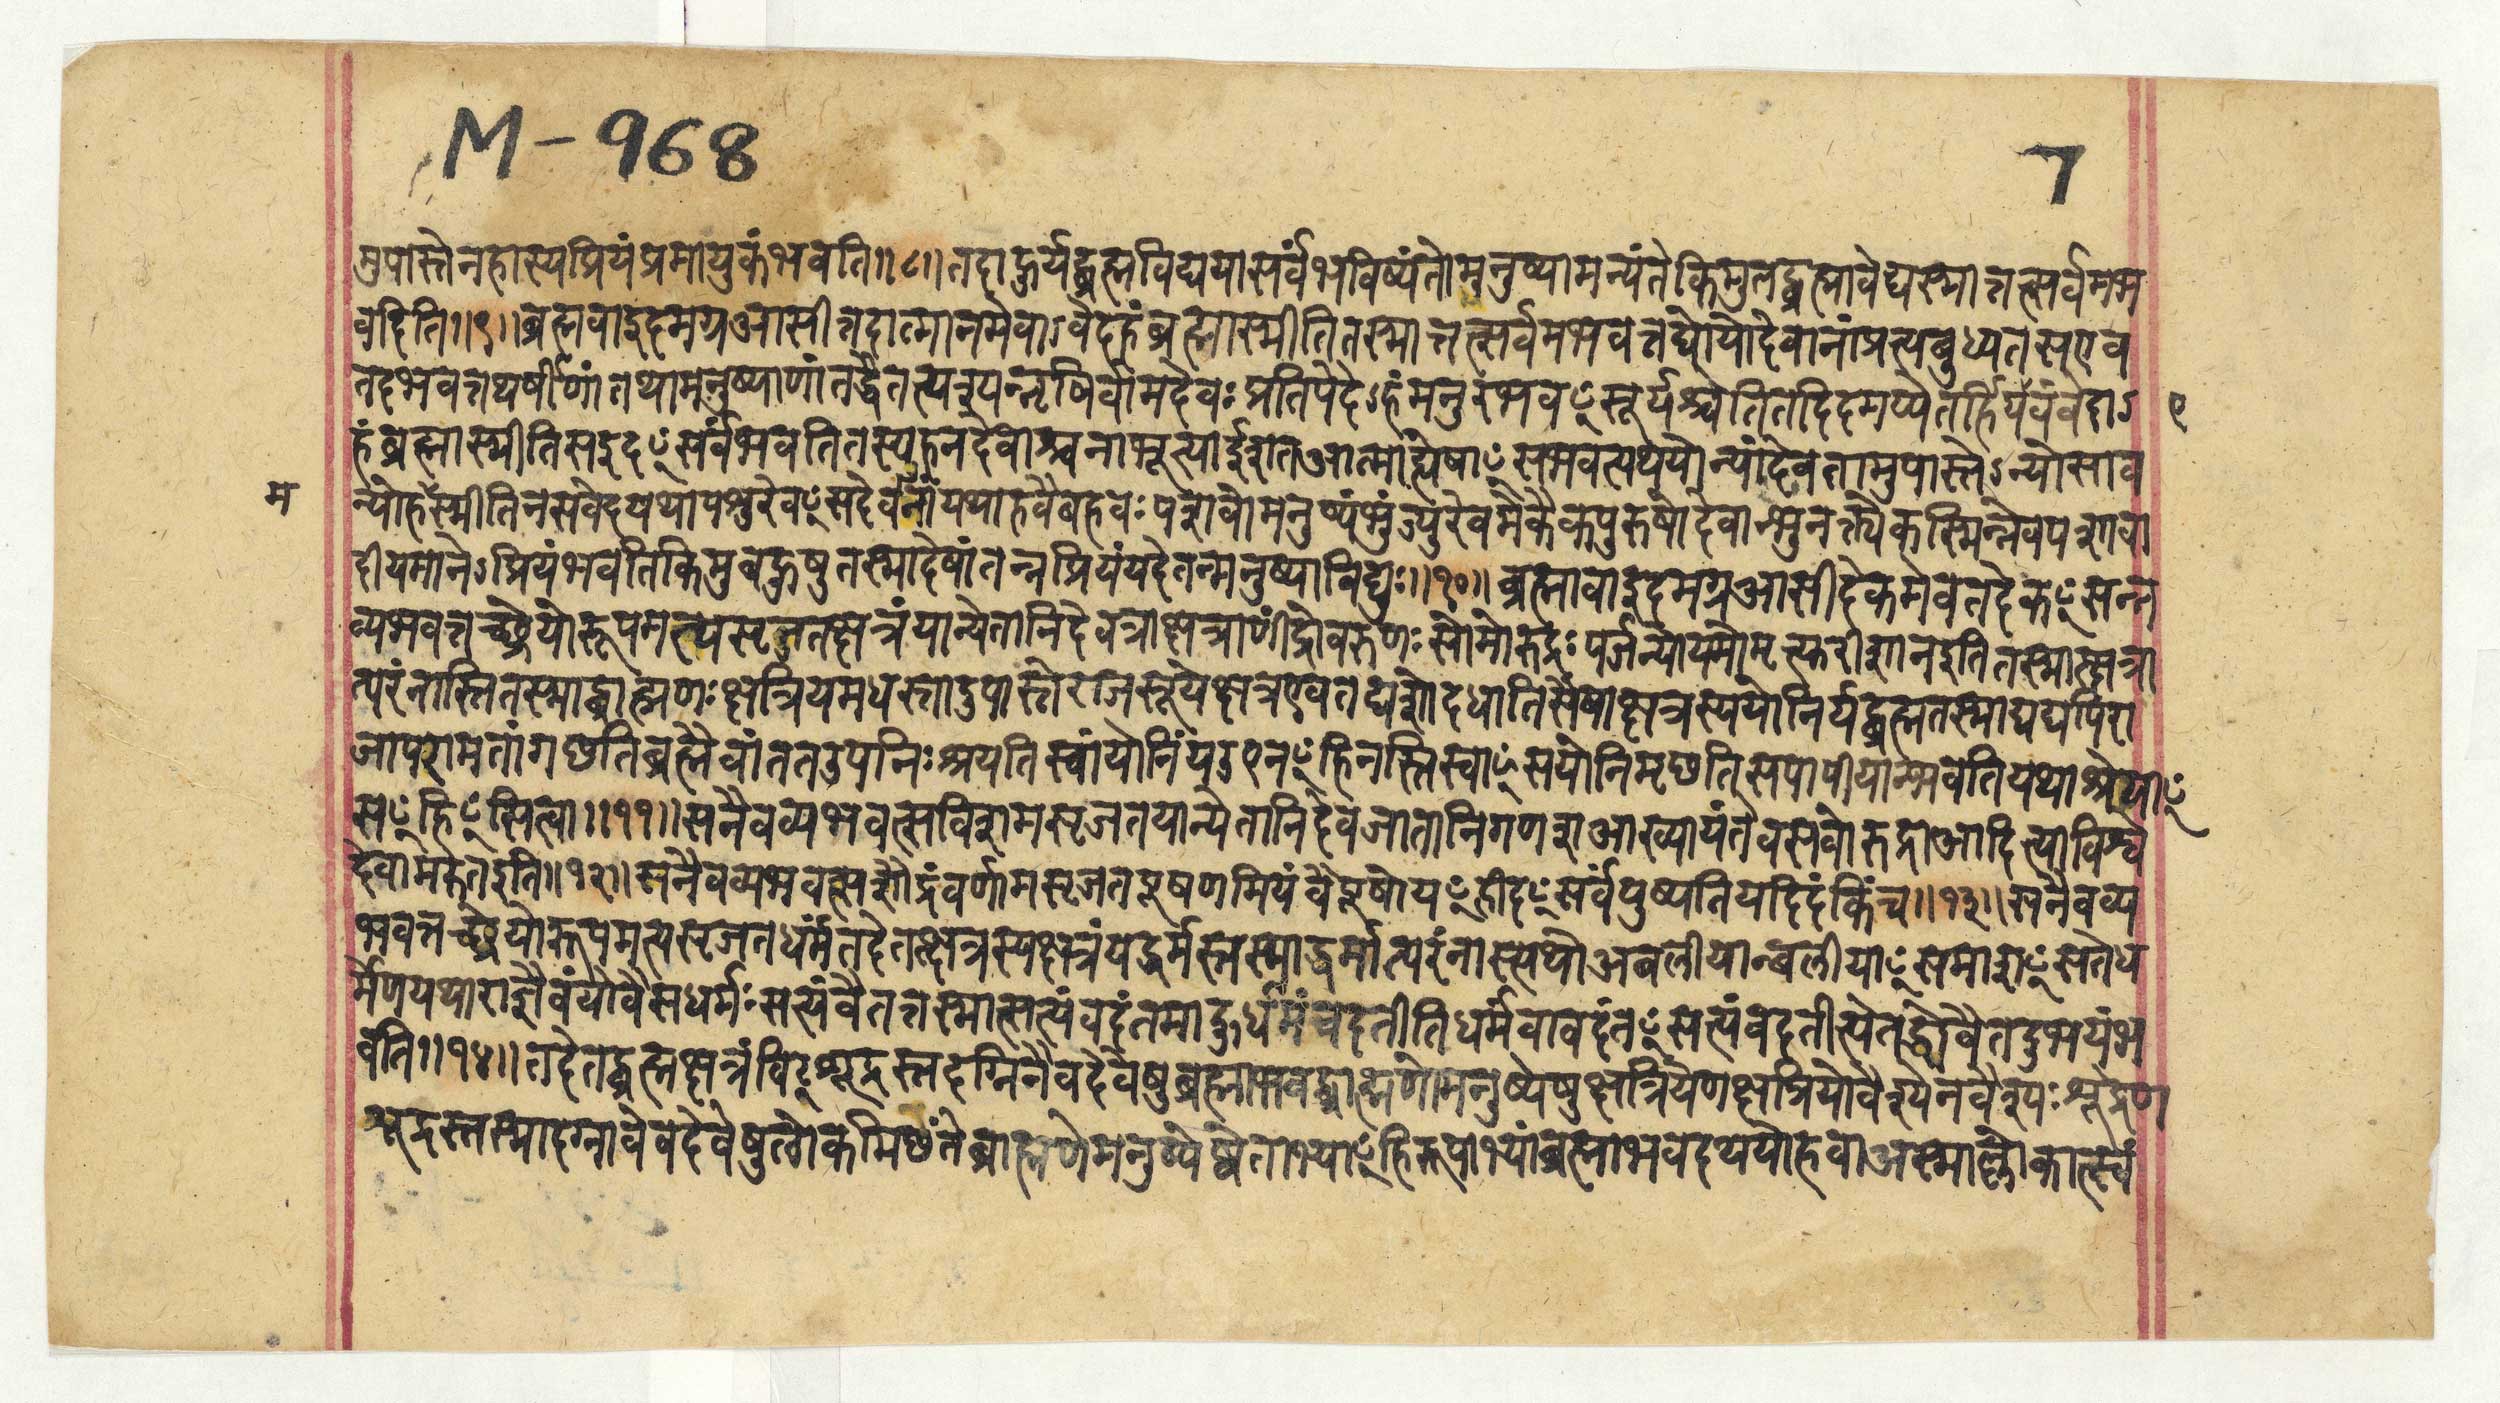 M-968
7
मुपास्तेनहास्यप्रियंप्रमायुकंभवति॥८॥तदाहुर्यद्ब्रह्मविद्ययासर्वंभविष्यंतोमनुष्यामन्यंतेकिमुतद्ब्रह्मावेद्यस्मात्तत्सर्वमभ
वदिति॥९॥ब्रह्मवाइदमग्रआसीत्तदात्मानमेवाऽवेदहंब्रह्मास्मीतितस्मात्तत्सर्वमभवत्तद्योयोदेवानांप्रत्यबुध्यतसएव
तदभवत्तथर्षीणांतथामनुष्याणांतद्धैतत्पश्यन्नृषिर्वामदेवःप्रतिपेदेऽहंमनुरभवꣳसूर्यश्चेतितदिदमप्येतर्हियएवंवेदाऽ
९
हंब्रह्मास्मीतिसइदꣳसर्वंभवतितस्यहनदेवाश्चनाभूत्याईशतआत्माह्येषाꣳसभवत्यथयोन्यांदेवतामुपास्तेऽन्योसाव
म
न्योहमस्मीतिनसवेदयथापशुरेवꣳसदेवानांयथाहवैबहवःपशवोमनुष्यंभुंज्युरेवमेकैकःपुरुषोदेवान्भुनक्त्येकस्मिन्नेवपशावा
दीयमानेऽप्रियंभवतिकिमुबहुषुतस्मादेषांतन्नप्रियंयदेतन्मनुष्याविद्युः॥१०॥ब्रह्मवाइदमग्रआसीदेकमेवतदेकꣳसन्न
व्यभवत्तच्छ्रेयोरूपमत्यसृजतक्षत्रंयान्येतानिदेवत्राक्षत्राणींद्रोवरुणःसोमोरुद्रःपर्जन्योयमोमृत्युरीशानइतितस्मात्क्षत्रा
त्परंनास्तितस्माद्ब्राह्मणःक्षत्रियमधस्तादुपास्तेराजसूयेक्षत्रएवतद्यशोदधातिसैषाक्षत्रस्ययोनिर्यद्ब्रह्मतस्माद्यद्यपिरा
जापरमतांगछतिब्रह्मैवांततउपनिःश्रयतिस्वांयोनिंयउएनꣳहिनस्तिस्वाꣳसयोनिमृछतिसपापीयान्भवतियथाश्रेयाꣳ
सꣳहिꣳसित्वा॥११॥सनैवव्यभवत्सविशमसृजतयान्येतानिदेवजातानिगणशआख्यायंतेवसवोरुद्राआदित्याविश्वे
देवामरुतइति॥१२॥सनैवव्यभवत्सशौद्रंवर्णमसृजतपूषणमियंवैपूषेयꣳहीदꣳसर्वंपुष्यतियदिदंकिंच॥१३॥सनैवव्य
भवत्तच्छ्रेयोरूपमत्यसृजतधर्मंतदेतत्क्षत्रस्यक्षत्रंयद्धर्मस्तस्माद्धर्मात्परंनास्त्यथोअबलीयान्बलीयाꣳसमाशꣳसतेध
र्मेणयथाराज्ञैवंयोवैसधर्मःसत्यंवैतत्तस्मात्सत्यंवदंतमाहुर्धर्मंवदतीतिधर्मंवावदंतꣳसत्यंवदतीत्येतद्ध्येवैतदुभयंभ
वति॥१४॥तदेतद्ब्रह्मक्षत्रंविट्शूद्रस्तदग्निनैवदेवेषुब्रह्माभवद्ब्राह्मणोमनुष्येषुक्षत्रियेणक्षत्रियोवैश्येनवैश्यःशूद्रेण
शूद्रस्तस्मादग्नावेवदेवेषुलोकमिछंतेब्राह्मणेमनुष्येष्वेताभ्याꣳहिरूपाभ्यांब्रह्माभवदथयोहवाअस्माल्लोकात्स्वं